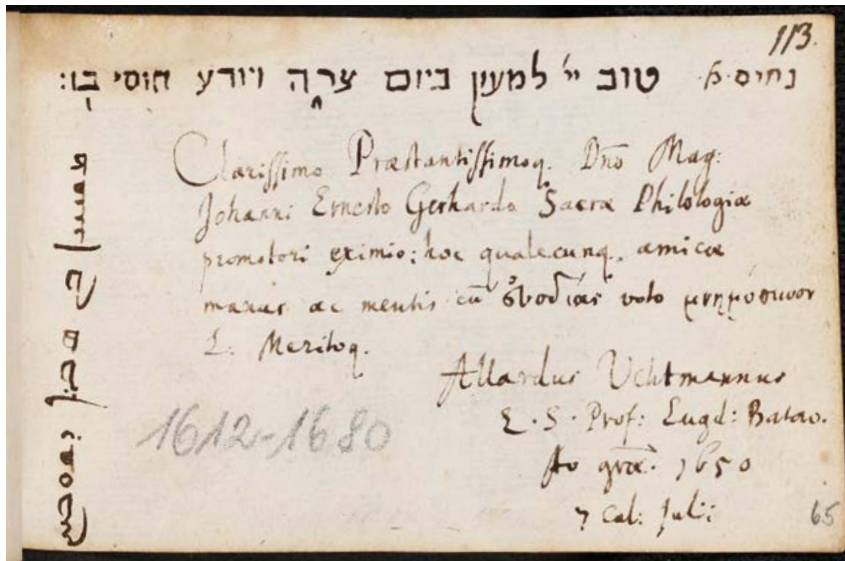 113.
נחום. א. טוב יי׳ למעוז ביום צרה ויודע חוסי בו:
Clarissimo Præstantissimoq. Dno Mag:
Johanni Ernesto Gerhardo Sacræ Philologiæ
promotori eximio: hoc qualecunq. amicæ
manus ac mentis cū voto μνημόσυνον
L. Meritoq.
Allardus Uchtmannus
L. S. Prof: Lugd: Batav.
Ao 1650
7 Cal: Julii
1612-1680
65